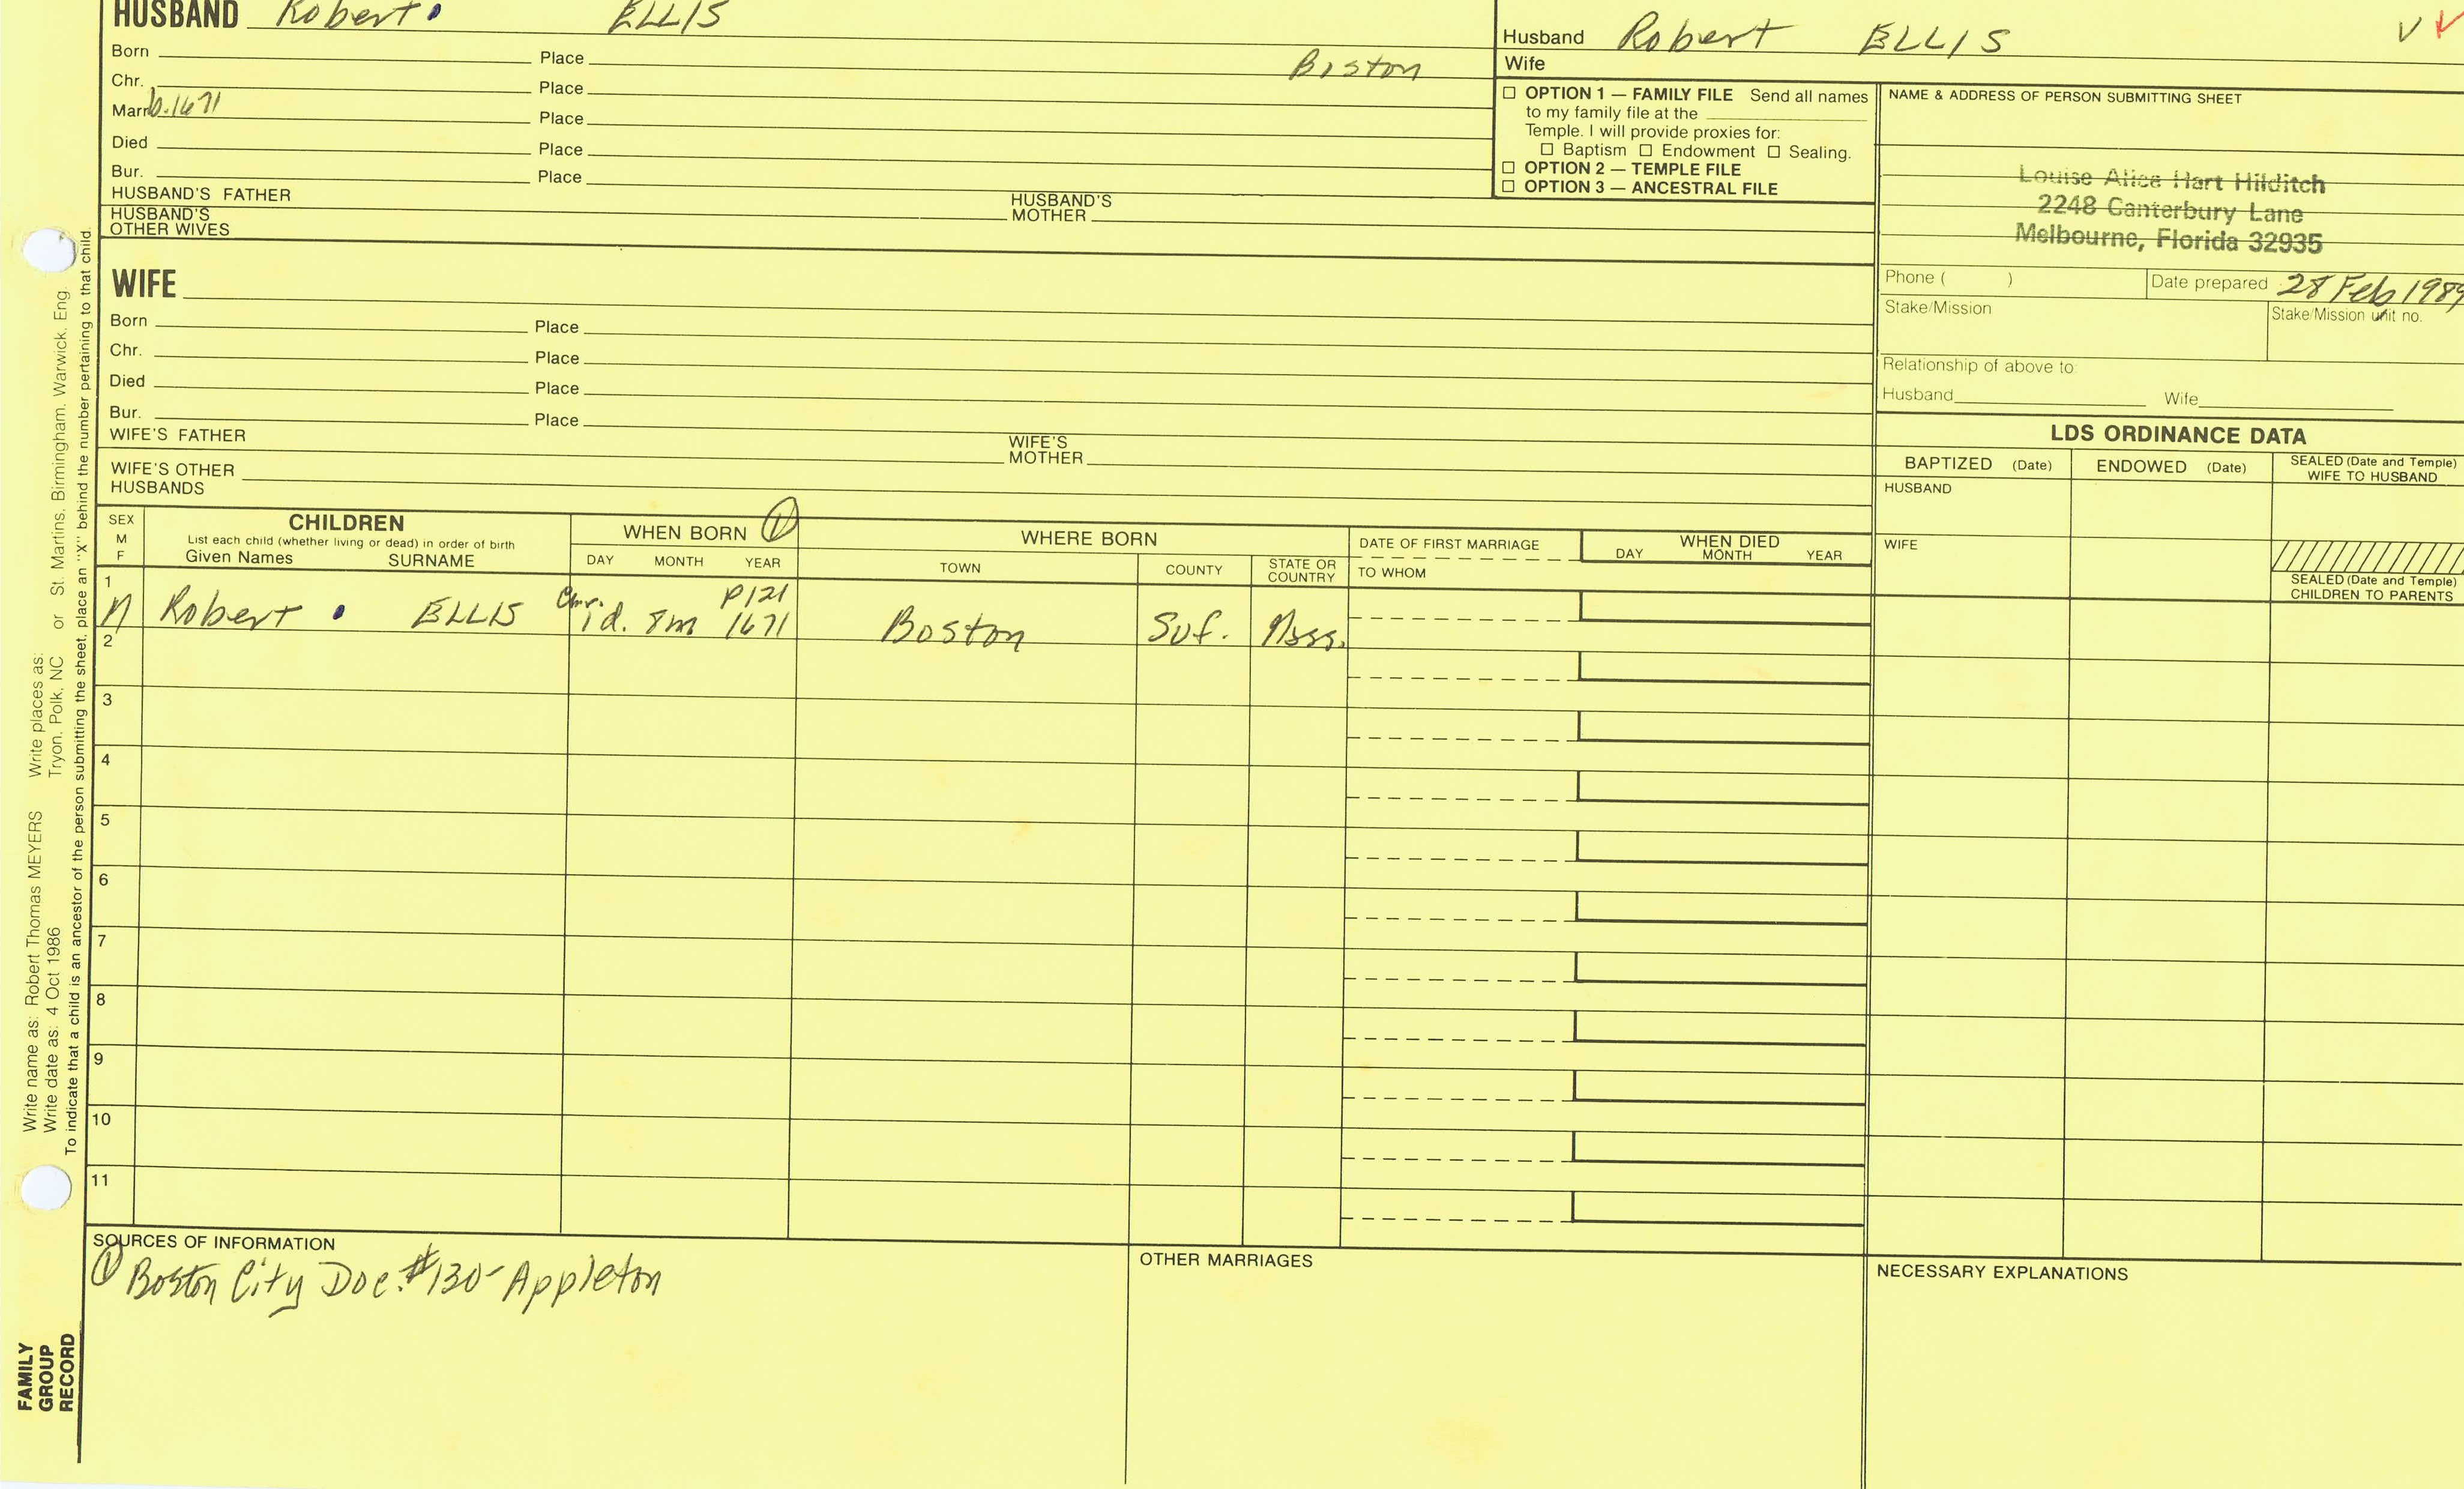 HUSBAND Robert ELLIS
Born Place Boston
Chr. Place
Marr. b.1671 Place
Died Place
Bur. Place
HUSBAND'S FATHER HUSBAND'S MOTHER
HUSBAND'S OTHER WIVES
Husband Robert ELLIS
Wife
☐ OPTION 1 — FAMILY FILE Send all names
to my family file at the
Temple. I will provide proxies for:
☐ Baptism ☐ Endowment ☐ Sealing.
☐ OPTION 2 — TEMPLE FILE
☐ OPTION 3 — ANCESTRAL FILE
NAME & ADDRESS OF PERSON SUBMITTING SHEET
Louise Alice Hart Hilditch
2248 Canterbury Lane
Melbourne, Florida 32935
Phone ( ) Date prepared 28 Feb 1989
Stake/Mission Stake/Mission unit no.
Relationship of above to:
Husband Wife
WIFE
Born Place
Chr. Place
Died Place
Bur. Place
WIFE'S FATHER WIFE'S MOTHER
WIFE'S OTHER HUSBANDS
LDS ORDINANCE DATA
BAPTIZED (Date) ENDOWED (Date) SEALED (Date and Temple) WIFE TO HUSBAND
HUSBAND
WIFE
SEALED (Date and Temple) CHILDREN TO PARENTS
SEX M F
CHILDREN
List each child (whether living or dead) in order of birth
Given Names SURNAME
WHEN BORN ①
DAY MONTH YEAR
WHERE BORN
TOWN COUNTY STATE OR COUNTRY
DATE OF FIRST MARRIAGE
TO WHOM
WHEN DIED
DAY MONTH YEAR
1 M Robert ELLIS Chr. 1d. 8m P121 1671 Boston Suf. Mass.
2
3
4
5
6
7
8
9
10
11
SOURCES OF INFORMATION
① Boston City Doc. #130- Appleton
OTHER MARRIAGES
NECESSARY EXPLANATIONS
Write name as: Robert Thomas MEYERS Write places as:
Write date as: 4 Oct 1986 Tryon, Polk, NC or St. Martins, Birmingham, Warwick, Eng.
To indicate that a child is an ancestor of the person submitting the sheet, place an "X" behind the number pertaining to that child.
FAMILY
GROUP
RECORD